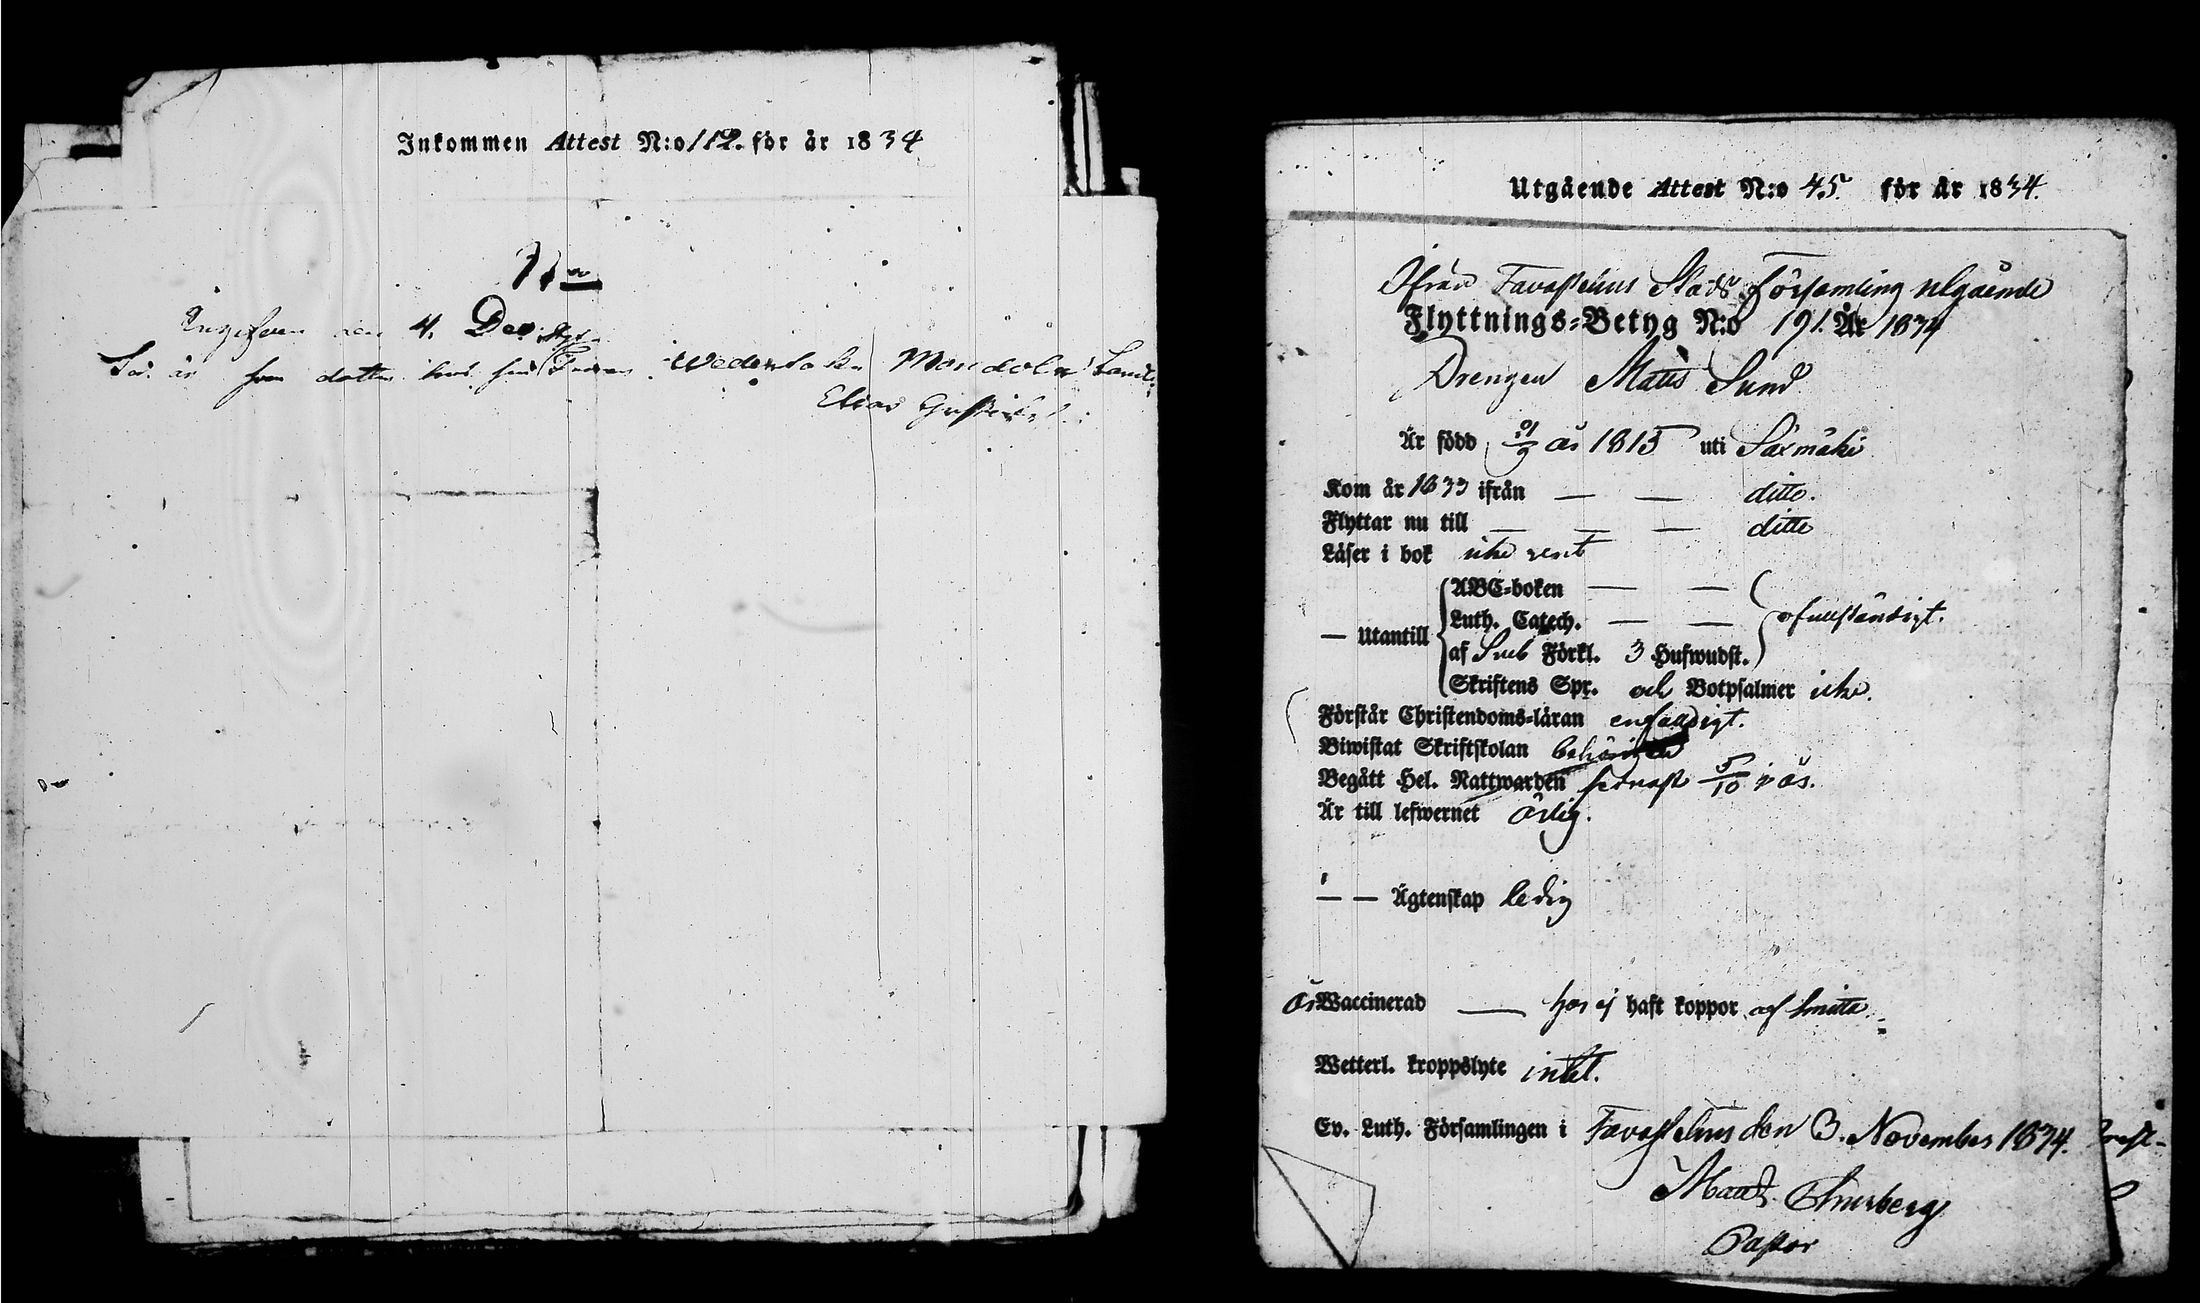 Inkommen Attest N:o 112. för år 1834
den 4. Dec.
hos
Elias
Utgående Attest N:o 45. för år 1834.
Ifrån Tavastehus Stads Församling utgående
Flyttnings-Betyg N:o 191. År 1834
Drengen Matts Sund
Är född år 1815 uti Säxmäki
Kom år 1833 ifrån — — ditto.
Flyttar nu till — — — ditto
Läser i bok icke rent
— Utantill
ABC-boken — —
Luth. Catech. — — ofullständigt.
af Sveb Förkl. 3 Hufwudst.
Skriftens Spr. och Botpsalmer icke.
Förstår Christendoms-läran enfaldigt.
Biwistat Skriftskolan
Begått Hel. Nattwarden sednast 5/10 i år.
Är till lefwernet ärlig.
— — Ägtenskap ledig
är Waccinerad — har ej haft koppor af smitta
Wetterl. kroppslyte intet.
Ev. Luth. Församlingen i Tavastehus den 3. November 1834.
Thurberg
Pastor